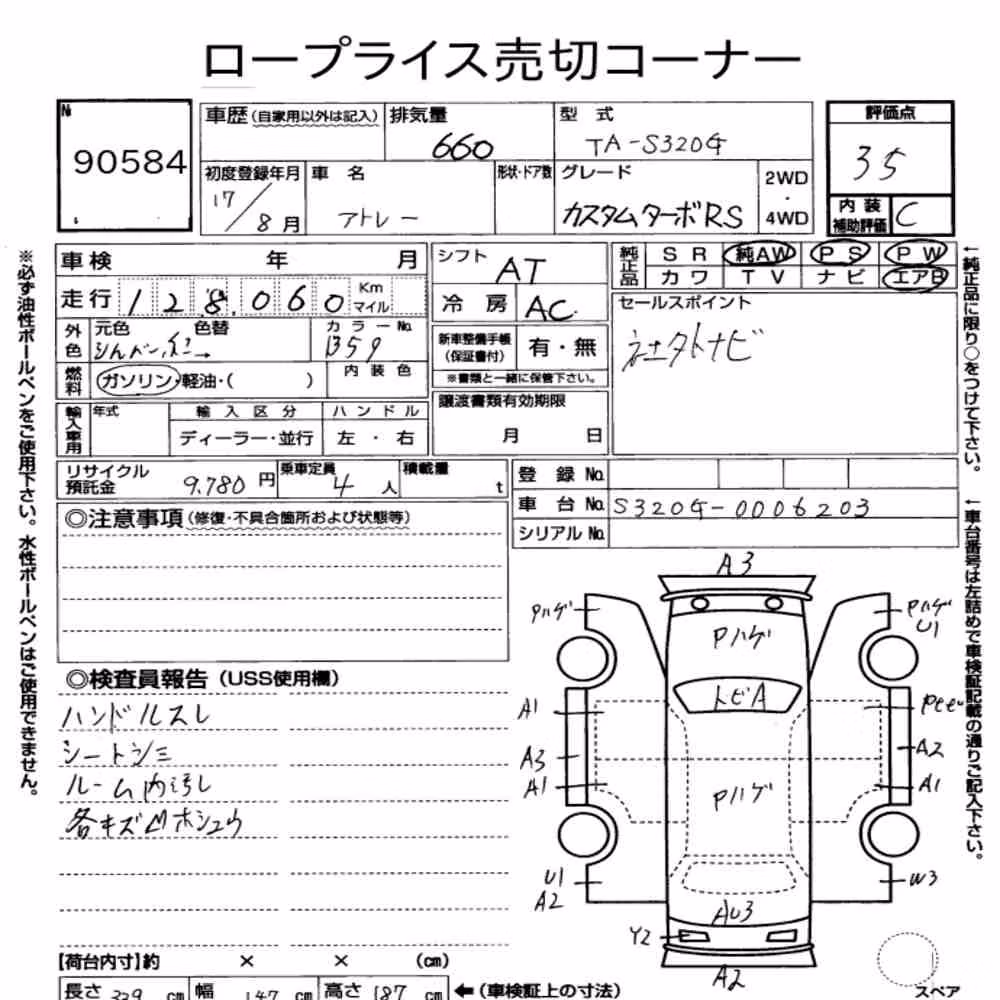 ロープライス売切コーナー
№ 90584
車歴 (自家用以外は記入) 排気量 660 型式 TA-S320G 評価点 35
初度登録年月 17/8月 車名 アトレー 形状・ドア数 グレード カスタムターボRS 2WD・4WD
内装補助評価 C
車検 年 月 シフト AT 純正品 SR 純AW PS PW
カワ TV ナビ エアB
走行 128,060 Km マイル 冷房 AC
セールスポイント
社外ナビ
外色 元色 色替 カラーNo. B59
新車整備手帳(保証書付) 有・無
※書類と一緒に保管下さい。
燃料 ガソリン・軽油・( ) 内装色
譲渡書類有効期限
月 日
輸入車用 年式 輸入区分 ハンドル
ディーラー・並行 左・右
リサイクル預託金 9,780円 乗車定員 4人 積載量 t
登録No.
車台No. S320G-0006203
シリアルNo.
◎注意事項(修復・不具合箇所および状態等)
◎検査員報告(USS使用欄)
ハンドルスレ
シートシミ
ルーム内汚レ
各キズ凹ホシュウ
A3
Pハゲ Pハゲ U1
Pハゲ
トビA
A1
A3 A2
A1 A1
Pハゲ
U1 A2 W3
AU3
Y2
A2
スペア
【荷台内寸】約 × × (cm)
長さ 339 cm 幅 147 cm 高さ 187 cm ←(車検証上の寸法)
※必ず油性ボールペンをご使用下さい。水性ボールペンはご使用できません。
←純正品に限り○をつけて下さい。
←車台番号は左詰めで車検証記載の通りご記入下さい。